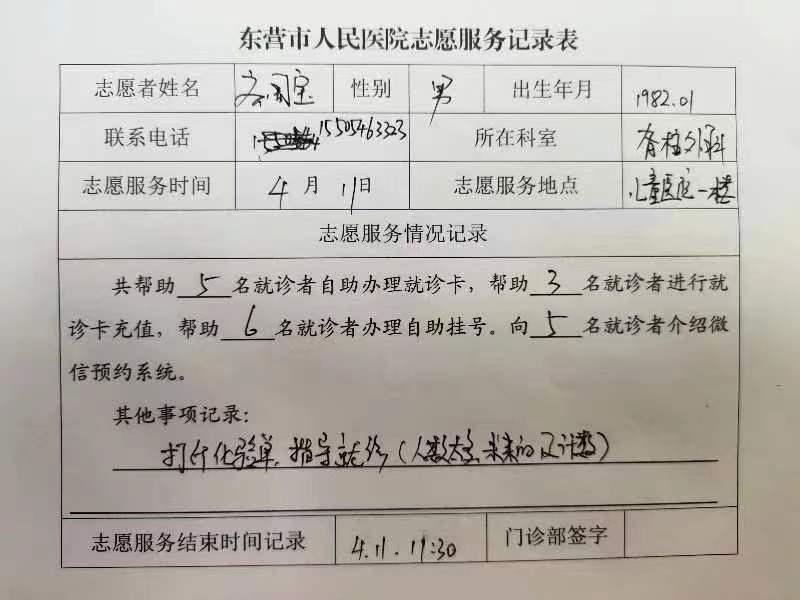 东营市人民医院志愿服务记录表
志愿者姓名 国宝 性别 男 出生年月 1982.01
联系电话 15505463323 所在科室 脊柱外科
志愿服务时间 4月11日 志愿服务地点 儿童医院一楼
志愿服务情况记录
共帮助5名就诊者自助办理就诊卡，帮助3名就诊者进行就
诊卡充值，帮助6名就诊者办理自助挂号。向5名就诊者介绍微
信预约系统。
其他事项记录：
打印化验单，指导就诊（人数太多未来的及计数）
志愿服务结束时间记录 4.11.11:30 门诊部签字